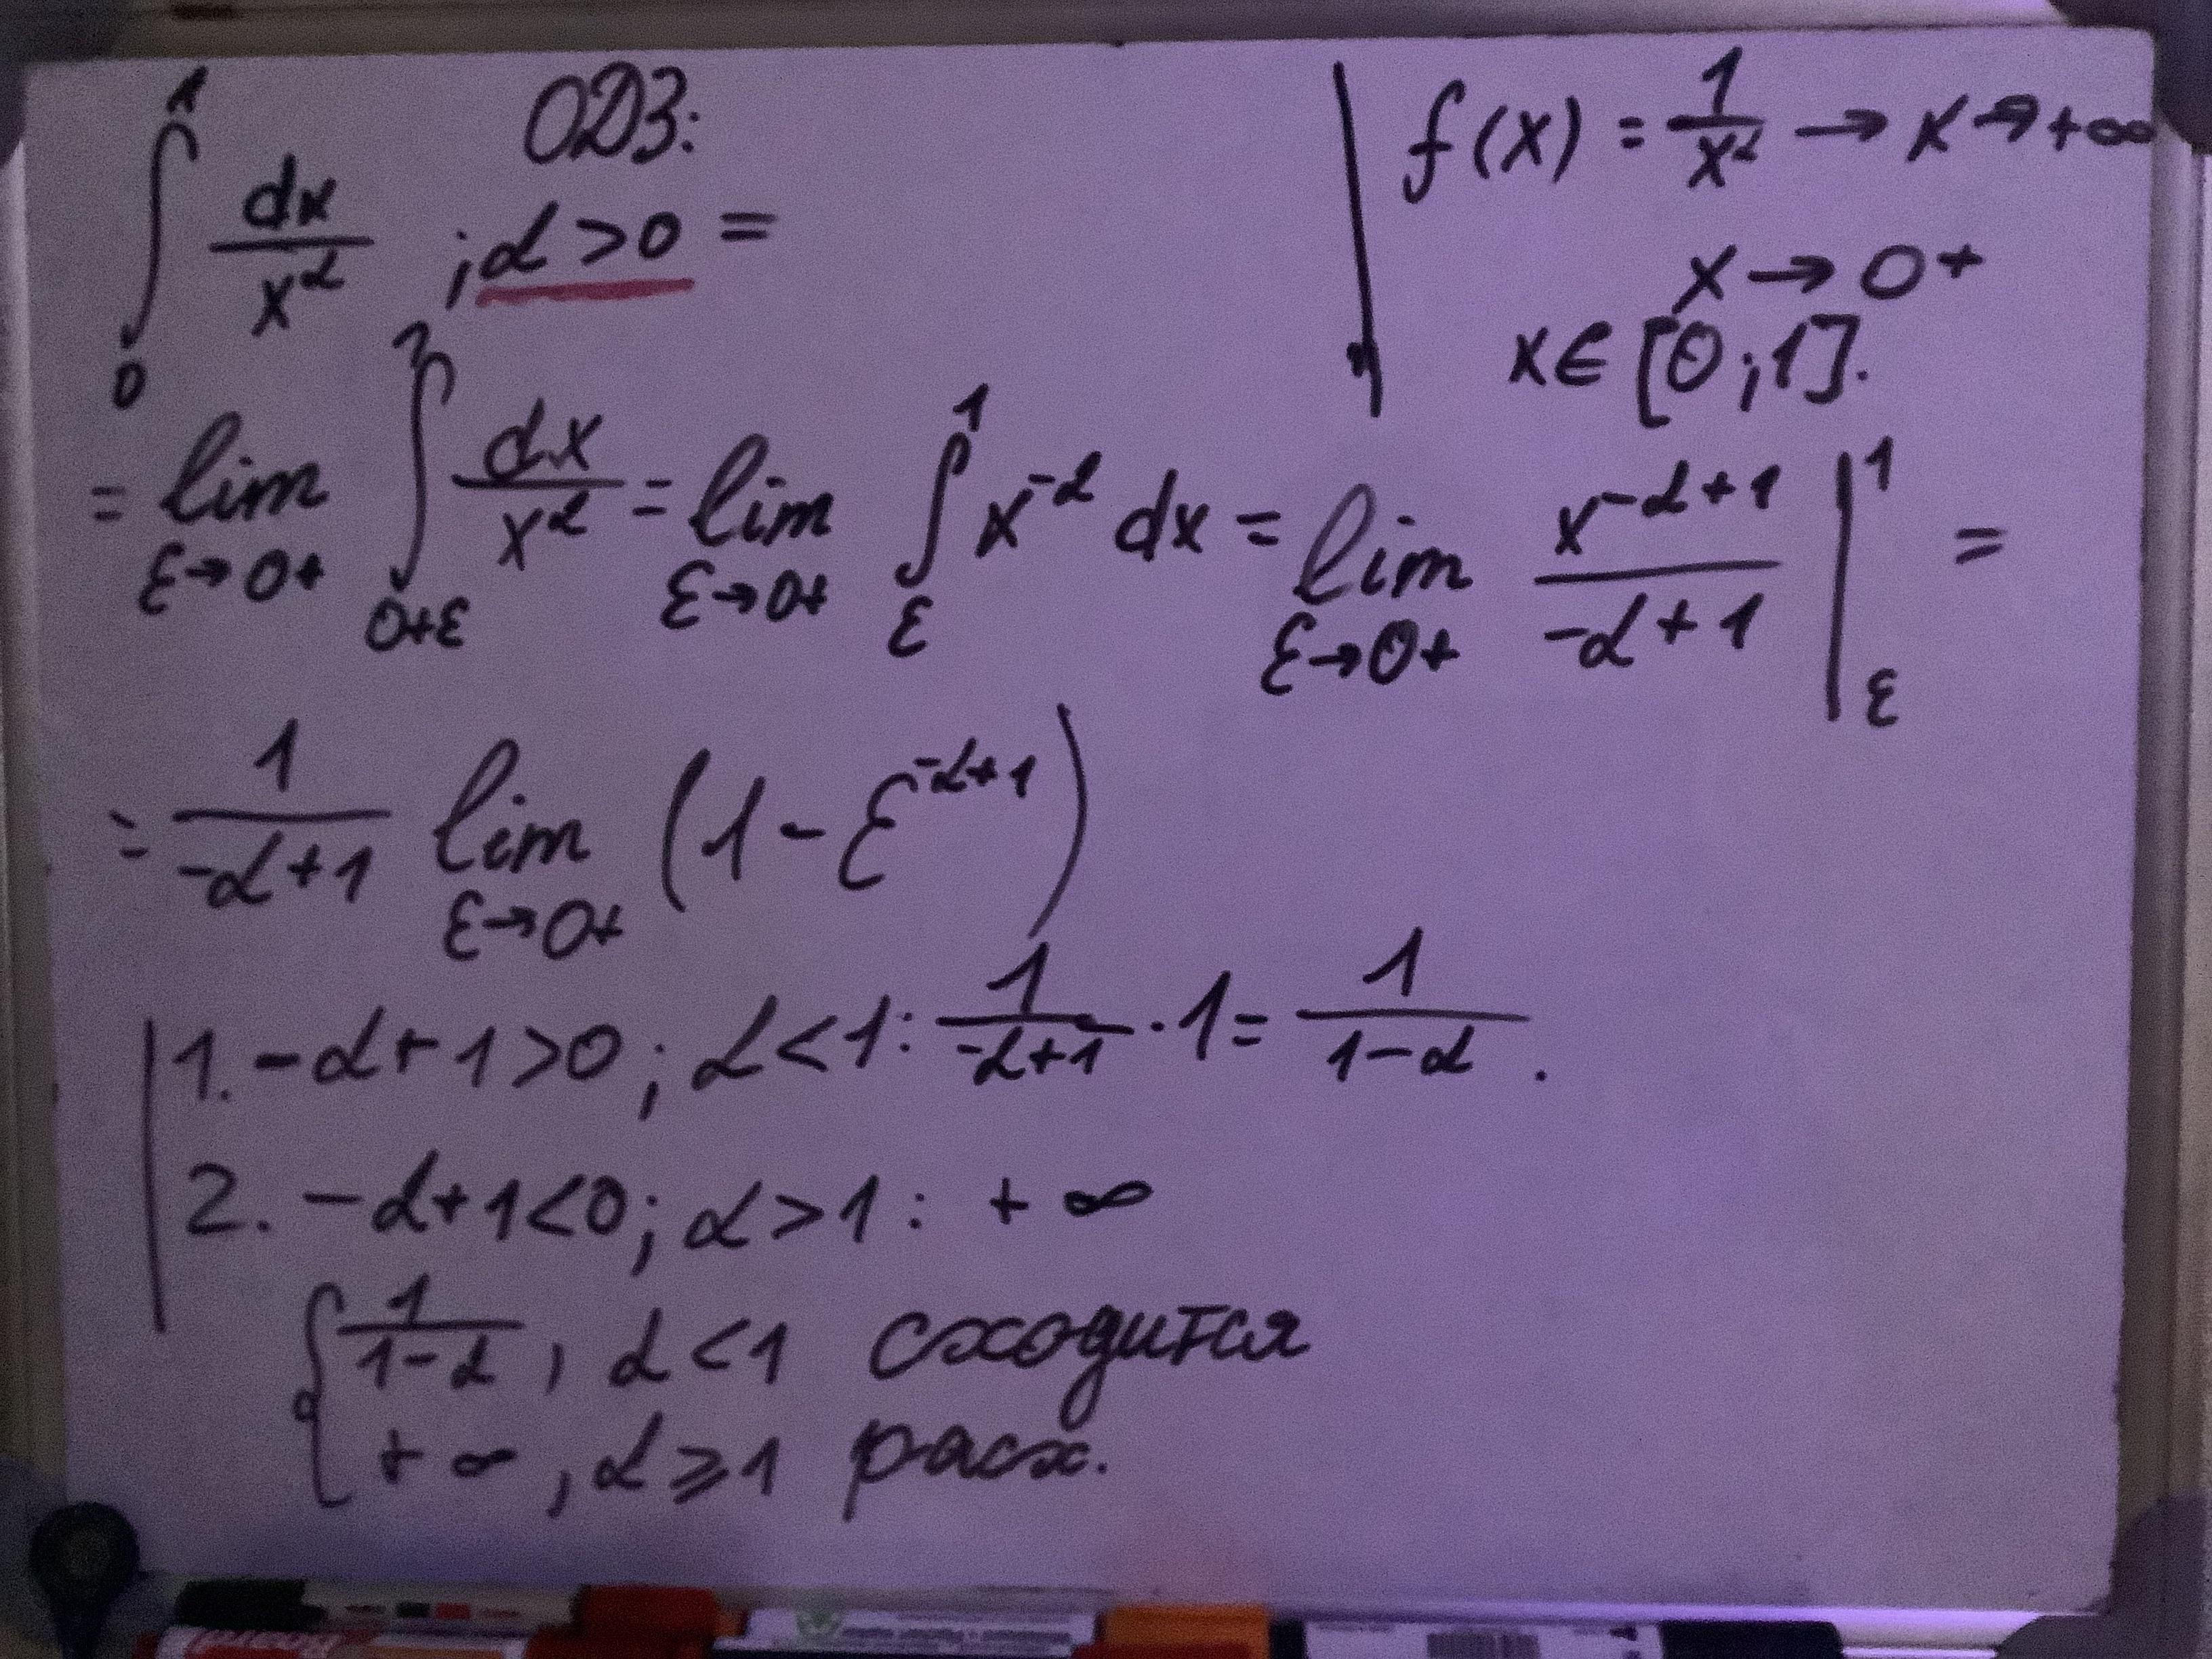 ∫₀¹ dx/x^α ОДЗ: ; α > 0 =
f(x) = 1/x^α → x → +∞
x → 0+
x ∈ [0; 1].
= lim_{ε→0+} ∫_{0+ε} dx/x^α = lim_{ε→0+} ∫_ε^1 x^{-α} dx = lim_{ε→0+} x^{-α+1}/(-α+1) |_ε^1 =
= 1/(-α+1) lim_{ε→0+} (1 - ε^{-α+1})
1. -α+1>0; α<1: 1/(-α+1) · 1 = 1/(1-α).
2. -α+1<0; α>1: +∞
{ 1/(1-α), α<1 сходится
+∞, α⩾1 расх.